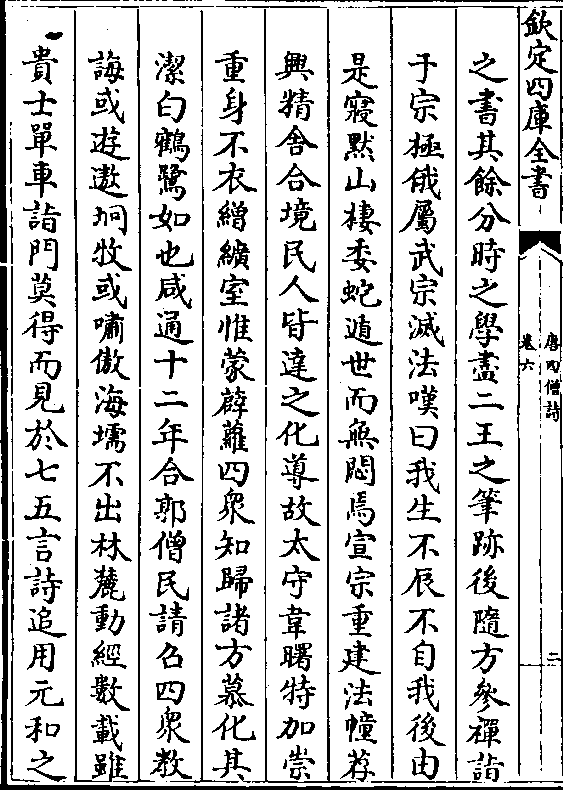 欽定四庫全書
唐四僧詩
卷六
二
之書其餘分時之學盡二王之筆跡後隨方參禪詣
于宗極俄屬武宗滅法嘆曰我生不辰不自我後由
是寢默山棲委蛇遁世而無悶焉宣宗重建法幢荐
興精舍合境民人皆達之化導故太守韋曙特加崇
重身不衣繒纊室惟蒙薜蘿四衆知歸諸方慕化其
潔白鶴鷺如也咸通十二年合郭僧民請召四衆教
誨或遊遨坰牧或嘯傲海壖不出林麓動經數載雖
貴士單車詣門莫得而見於七五言詩追用元和之